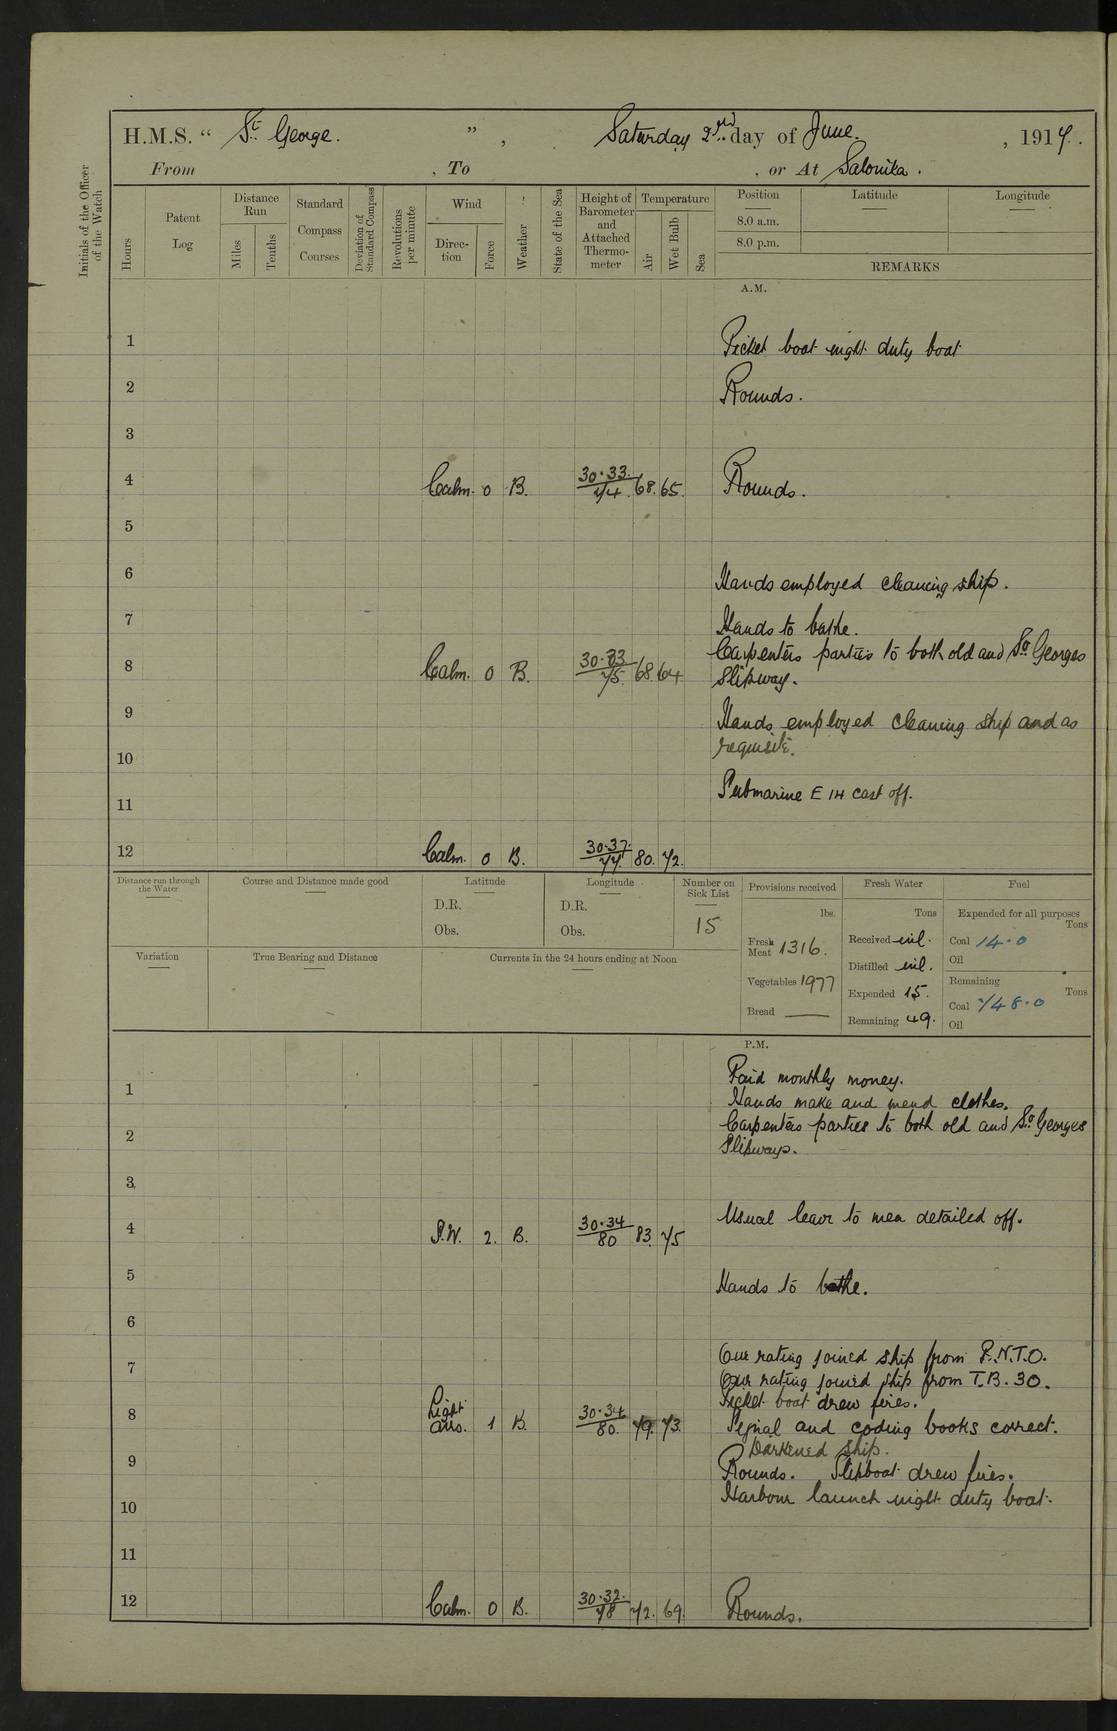 H.M.S. “ St George. ” , Saturday 2nd day of June. , 1917.
From , To , or At Salonika.
Initials of the Officer of the Watch
Hours
Patent Log
Distance Run
Miles
Tenths
Standard Compass Courses
Deviation of Standard Compass
Revolutions per minute
Wind
Direction
Force
Weather
State of the Sea
Height of Barometer and Attached Thermometer
Temperature
Air
Wet Bulb
Sea
Position Latitude Longitude
8.0 a.m.
8.0 p.m.
REMARKS
A.M.
1 Picket boat night duty boat
2 Rounds.
3
4 Calm. 0 B. 30.33. 74. 68. 65. Rounds.
5
6 Hands employed cleaning ship.
7 Hands to bathe.
Carpenters parties to both old and St Georges
8 Calm. 0 B. 30.33 75. 68 64 Slipway.
9 Hands employed cleaning ship and as
requisite.
10
Submarine E 14 cast off.
11
12 Calm. 0 B. 30.37. 77. 80. 72.
Distance run through the Water
Course and Distance made good
Latitude
D.R.
Obs.
Longitude
D.R.
Obs.
Number on Sick List
15
Provisions received
lbs.
Fresh Meat 1316.
Vegetables 1977
Bread
Fresh Water
Tons
Received nil.
Distilled nil.
Expended 15.
Remaining 49.
Fuel
Expended for all purposes
Tons
Coal 14.0
Oil
Remaining
Tons
Coal 748.0
Oil
Variation
True Bearing and Distance
Currents in the 24 hours ending at Noon
P.M.
Paid monthly money.
1 Hands make and mend clothes.
Carpenters parties to both old and St Georges
2 Slipways.
3
4 S.W. 2. B. 30.34 80 83. 75 Usual leave to men detailed off.
5 Hands to bathe.
6
One rating joined ship from P.N.T.O.
7 One rating joined ship from T.B. 30.
Picket boat drew fires.
8 Light airs. 1 B. 30.34 80. 79. 73. Signal and coding books correct.
Darkened ship.
9 Rounds. Slipboat drew fires.
Harbour launch night duty boat.
10
11
12 Calm. 0 B. 30.32. 78 72. 69. Rounds.